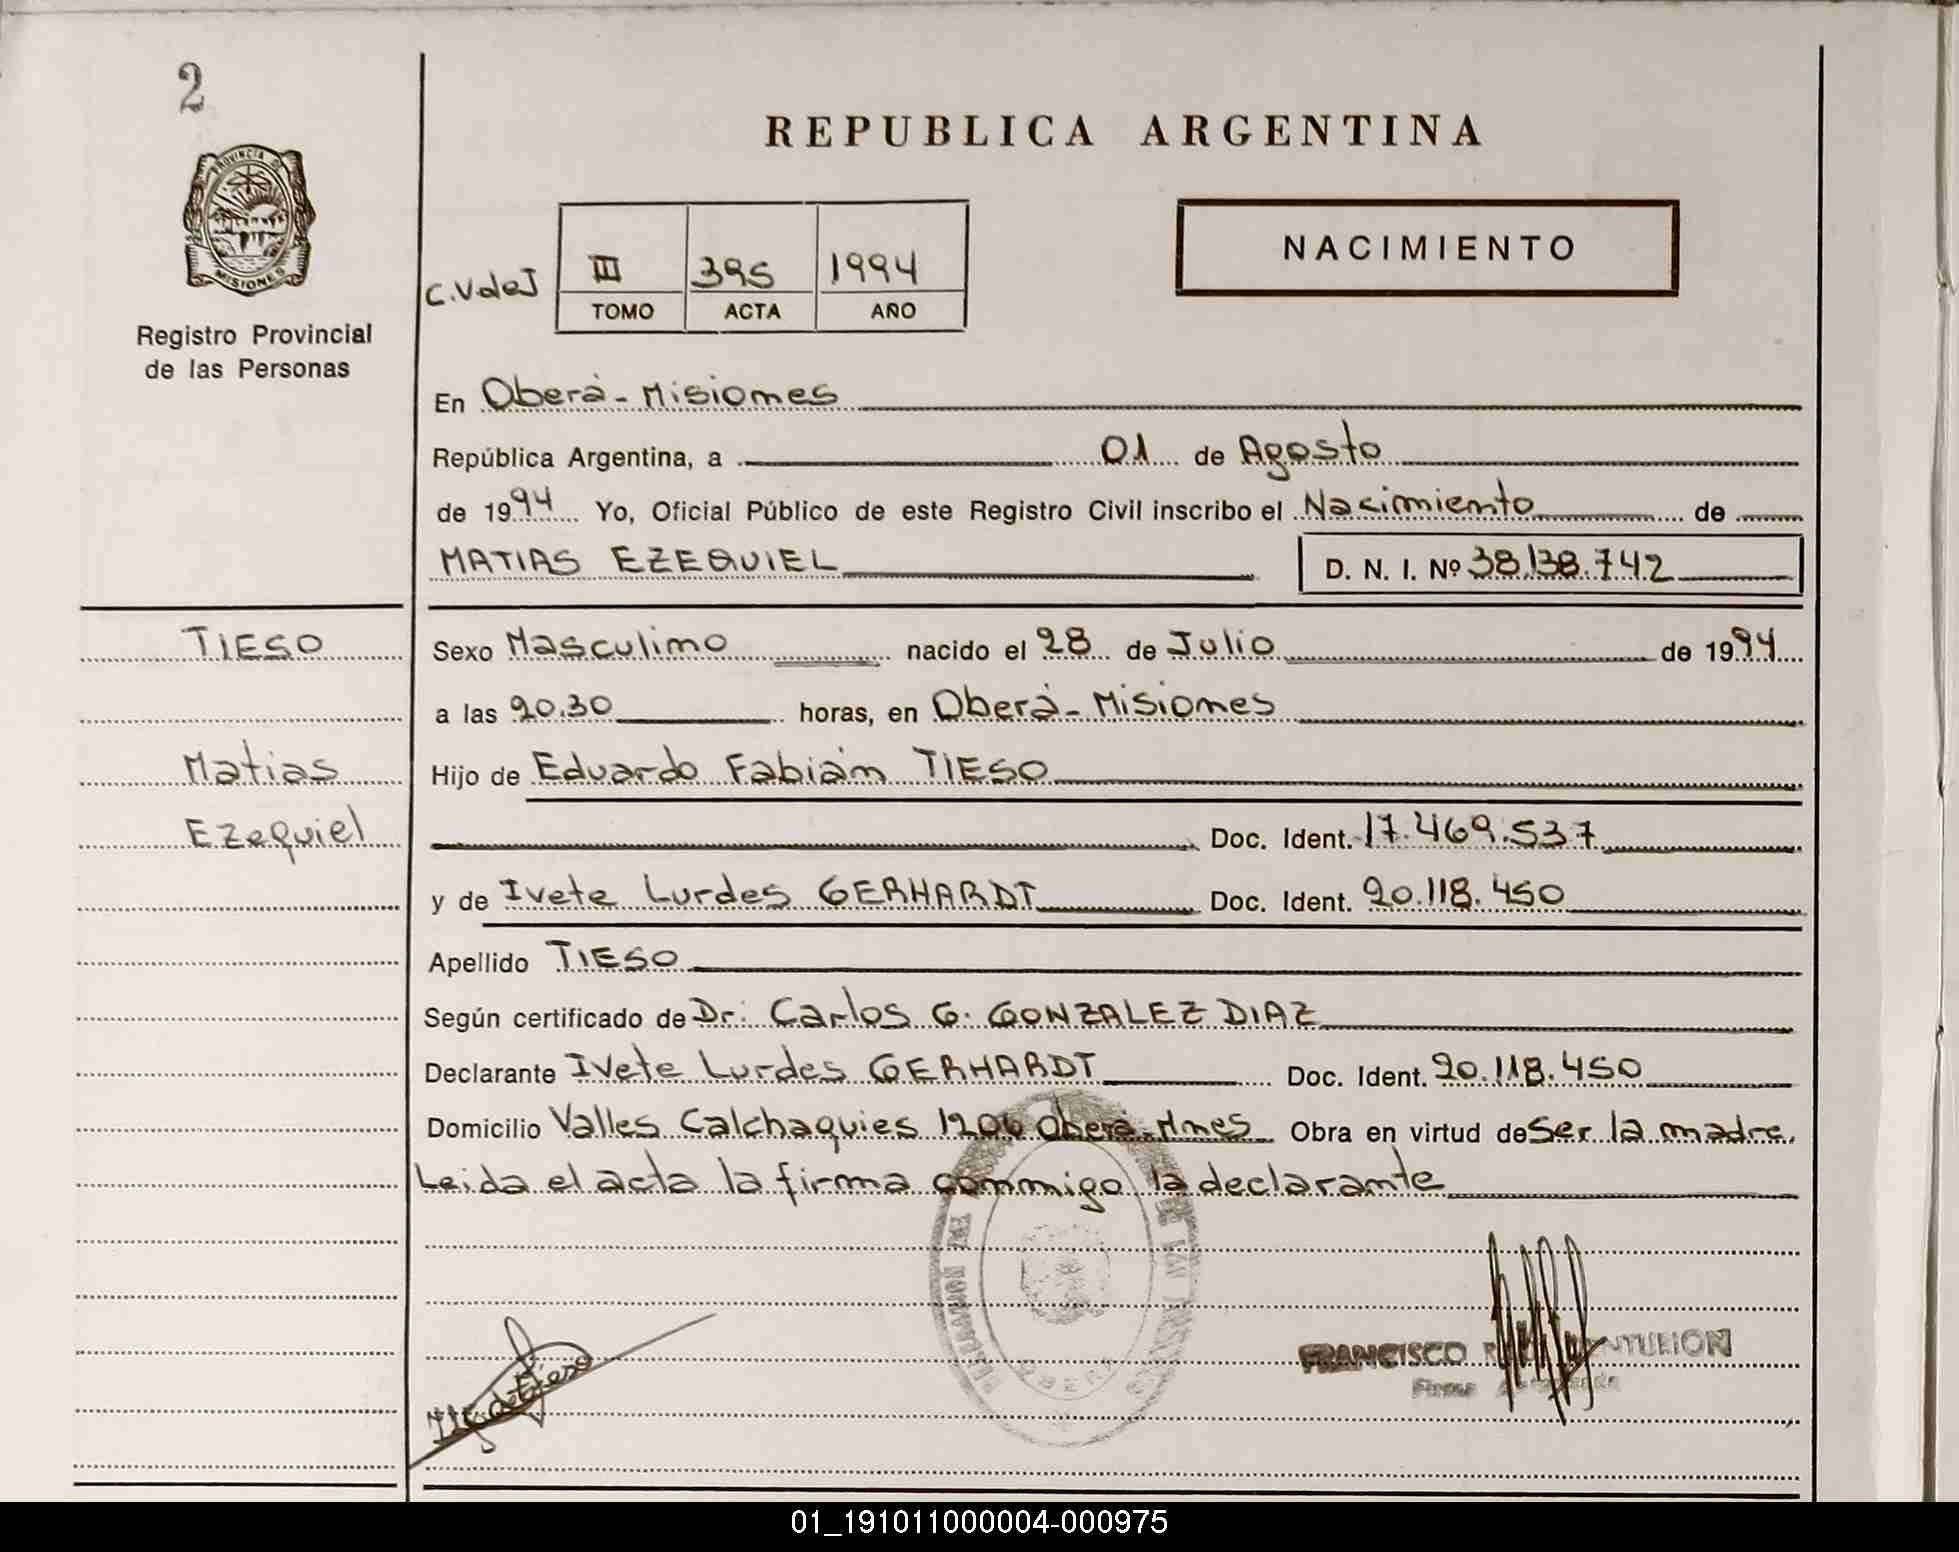 2
REPUBLICA ARGENTINA
PROVINCIA DE
MISIONES
Registro Provincial
de las Personas
C.VdeJ
III 395 1994
TOMO ACTA AÑO
NACIMIENTO
En Oberá - Misiones
República Argentina, a 01 de Agosto
de 1994 Yo, Oficial Público de este Registro Civil inscribo el Nacimiento de
MATIAS EZEQUIEL D. N. I. Nº 38.138.742
TIESO
Matias
Ezequiel
Sexo Masculino nacido el 28 de Julio de 1994
a las 20.30 horas, en Oberá - Misiones
Hijo de Eduardo Fabián TIESO
Doc. Ident. 17.469.537
y de Ivete Lurdes GERHARDT Doc. Ident. 20.118.450
Apellido TIESO
Según certificado de Dr: Carlos G. GONZALEZ DIAZ
Declarante Ivete Lurdes GERHARDT Doc. Ident. 20.118.450
Domicilio Valles Calchaquies 1206 Oberá - Mnes Obra en virtud de Ser la madre.
Leida el acta la firma conmigo la declarante
FRANCISCO
Firma
01_191011000004-000975